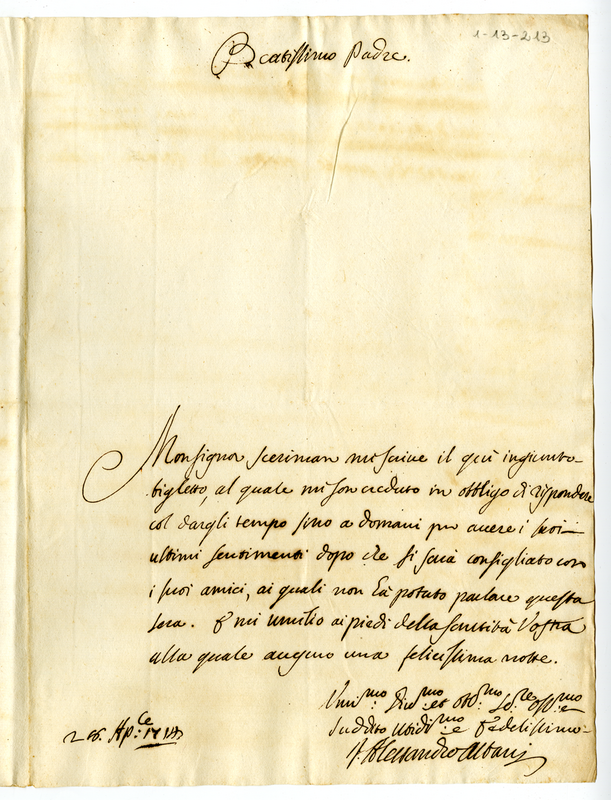 1-13-213
Beatissimo Padre.
Monsignor Sceriman mi scrive il quì ingiunto
biglietto, al quale mi son creduto in obbligo di rispondere
col dargli tempo sino a domani per avere i suoi
ultimi sentimenti dopo che si sarà consigliato con
i suoi amici, ai quali non hà potuto parlare questa
sera. E mi umilio ai piedi della Santità Vostra
alla quale auguro una felicissima notte.
Umi.mo Div.mo et Obb.mo Se.re Oss.mo
Suddito Ubidi.mo e Fedelissimo
Alessandro Albani
Ap.ce